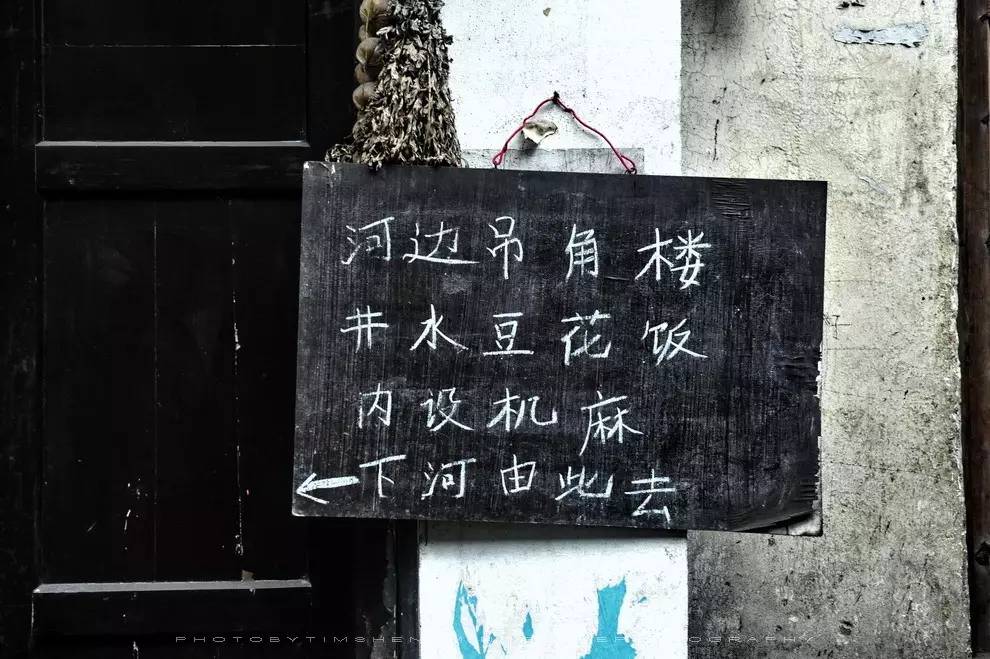 河边吊角楼
井水豆花饭
内设机麻
←下河由此去